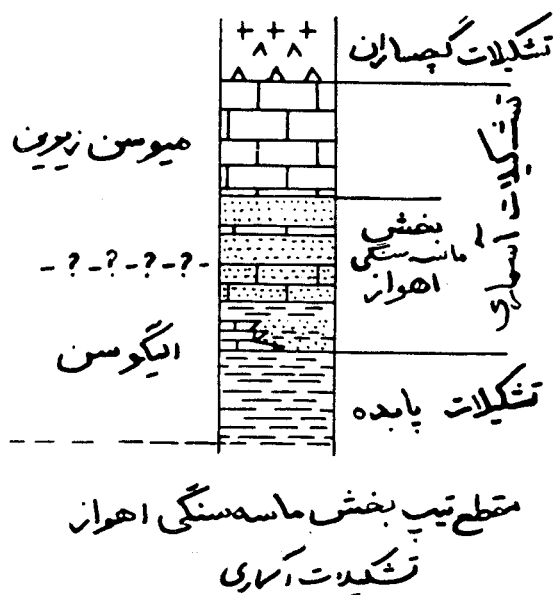 تشکیلات گچساران
تشکیلات آسماری
میوسن زیرین
بخش
ماسه سنگی
اهواز
- ? - ? - ? - ? -
الیگوسن
تشکیلات پابده
مقطع تیپ بخش ماسه سنگی اهواز
تشکیلات آسماری